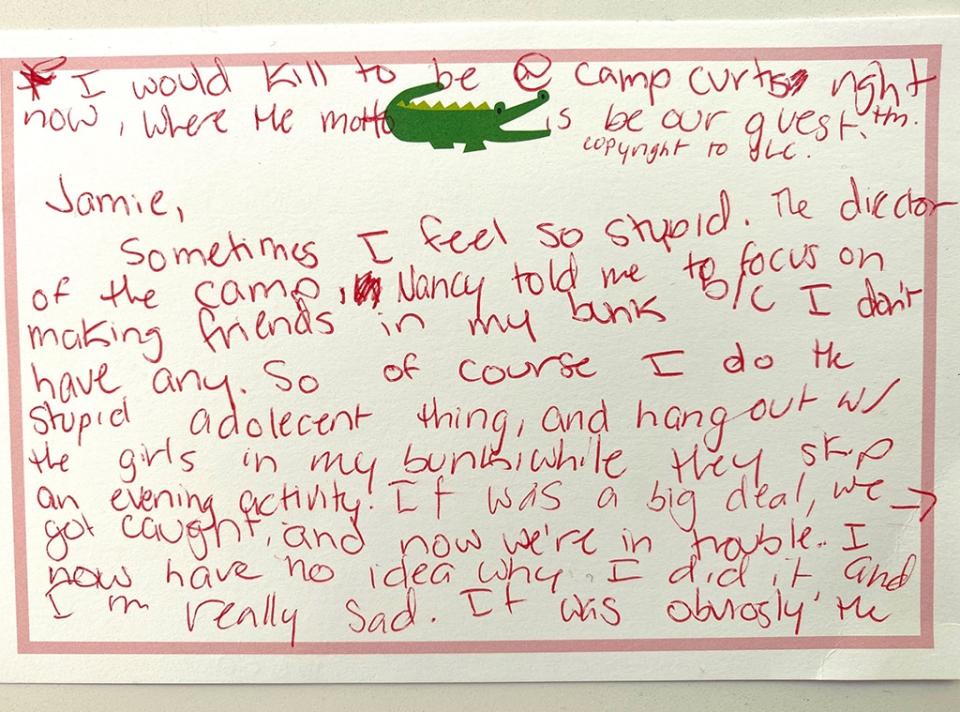 * I would kill to be @ camp curtis right
now, where the motto is be our guest. tm.
copyright to GLC.
Jamie,
Sometimes I feel so stupid. The director
of the camp, Nancy told me to focus on
making friends in my bunk b/c I don't
have any. So of course I do the
stupid adolecent thing, and hang out w/
the girls in my bunk while they skip
an evening activity. It was a big deal, we →
got caught, and now we're in trouble. I
now have no idea why I did it and
I'm really sad. It was obviosly the